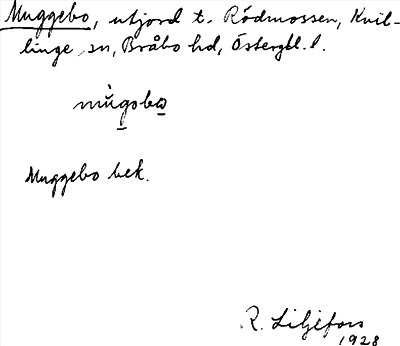 Muggebo, utjord t. Rödmossen, Kvil-
linge sn, Bråbo hd, Östergtl. l.
mùgobo
Muggebo bek.
R. Liljefors
1928